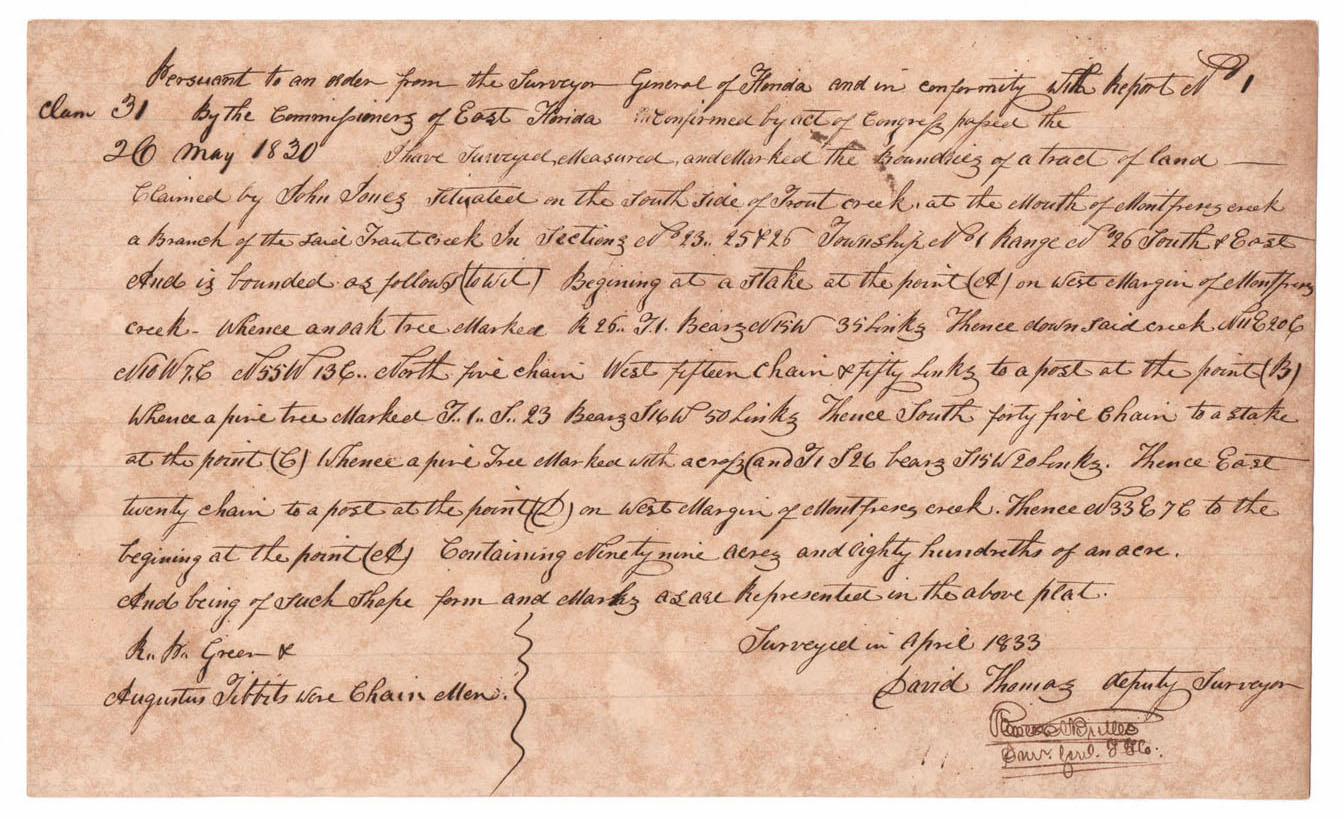 Persuant to an order from the Surveyor General of Florida and in conformity with Report No 1
Clam 31 By the Commissioners of East Florida Confirmed by act of Congress passed the
26 May 1830 I have Surveyed, Measured, and Marked the Boundries of a tract of land
Claimed by John Jones Situated on the South Side of Trout creek, at the Mouth of Montfreses creek
a Branch of the said Trout creek In Sections No 23.. 25 & 26 Township No 1 Range No 26 South & East
And is bounded as follows (to wit) Begining at a Stake at the point (A) on West Margin of Montfreses
creek - Whence an oak tree Marked R 26.. T.1. Bears N15W 35 Links Thence down said creek N11E20C
N10W7.C N55W13C.. North five chain West fifteen Chain & fifty Links to a post at the point (B)
Whence a pine tree Marked T..1.. S.. 23 Bears S16W 50 Links Thence South forty five Chain to a stake
at the point (C) Whence a pine Tree Marked with a cross (and T1 S26 bears S15W 20 Links. Thence East
twenty chain to a post at the point (D) on West Margin of Montfreses creek. Thence N33E7C to the
begining at the point (A) Containing Ninety nine acres and eighty hundreths of an acre.
And being of such Shape form and Marks as are Represented in the above plat.
R.. W. Green &
Augustus Tibbits were Chain Men.
Surveyed in April 1833
David Thomas deputy Surveyor
Sur. Genl.